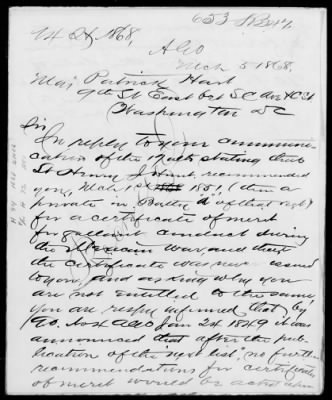 653
H 24 1868.
AGO
Mch 5 1868.
Maj Patrick Hart
9th St East bet S C Av & C St
Washington DC
Sir
In reply to your communi-
cation of the 12 ulto stating that
Lt Henry J Hunt recommended
you, Mch 1st 1851 (then a
private in Battery "A" of that regt)
for a certificate of merit
for gallant conduct during
the Mexican War, and that
the certificate was never issued
to you, and asking why you
are not entitled to the same,
you are respy informed that by
GO. No 4 AGO Jan 24 1849 it was
announced that after the pub-
lication of the "next list", no further
recommendations for certificates
of merit would be acted upon